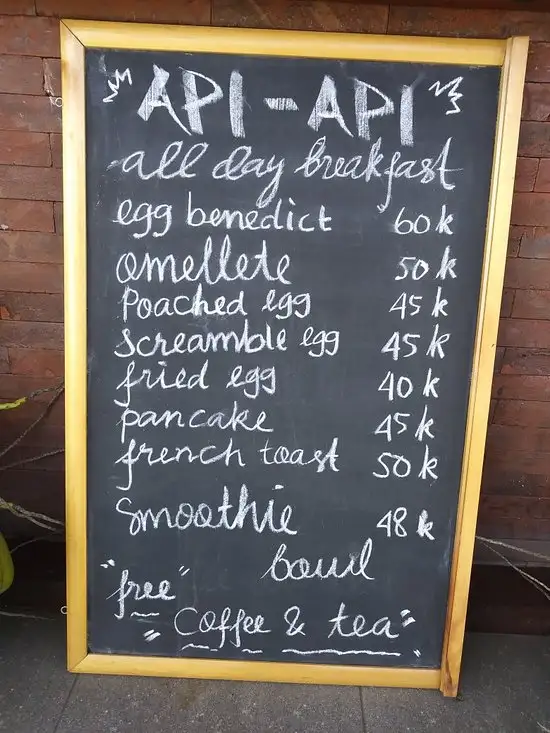 API-API
all day breakfast
egg benedict 60k
omellete 50k
Poached egg 45k
screamble egg 45k
fried egg 40k
pancake 45k
french toast 50k
Smoothie 48k
bowl
"free"
"Coffee & tea"